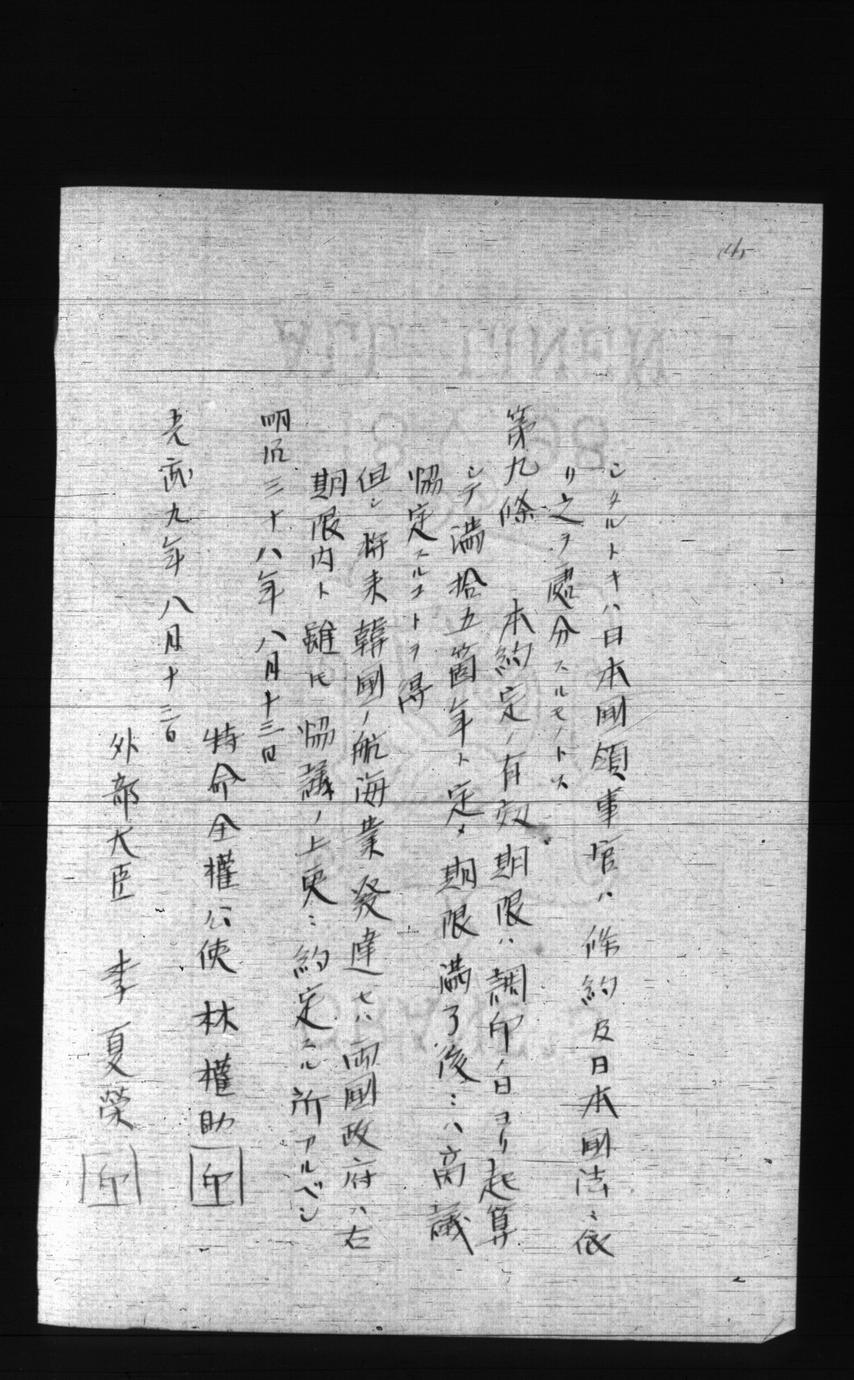 シタルトキハ日本國領事官ハ條約及日本國法ニ依
リ之ヲ處分スルモノトス
第九條　本約定ノ有效期限ハ調印ノ日ヨリ起算
シテ満拾五箇年ト定メ期限満了後ニハ商議
協定スルコトヲ得
但シ将来韓國ノ航海業發達セハ両國政府ハ右
期限内ト雖モ協議ノ上更ニ約定スル所アルベシ
明治三十八年八月十三日
特命全權公使 林 權助 印
光武九年八月十三日
外部大臣 李夏榮 印